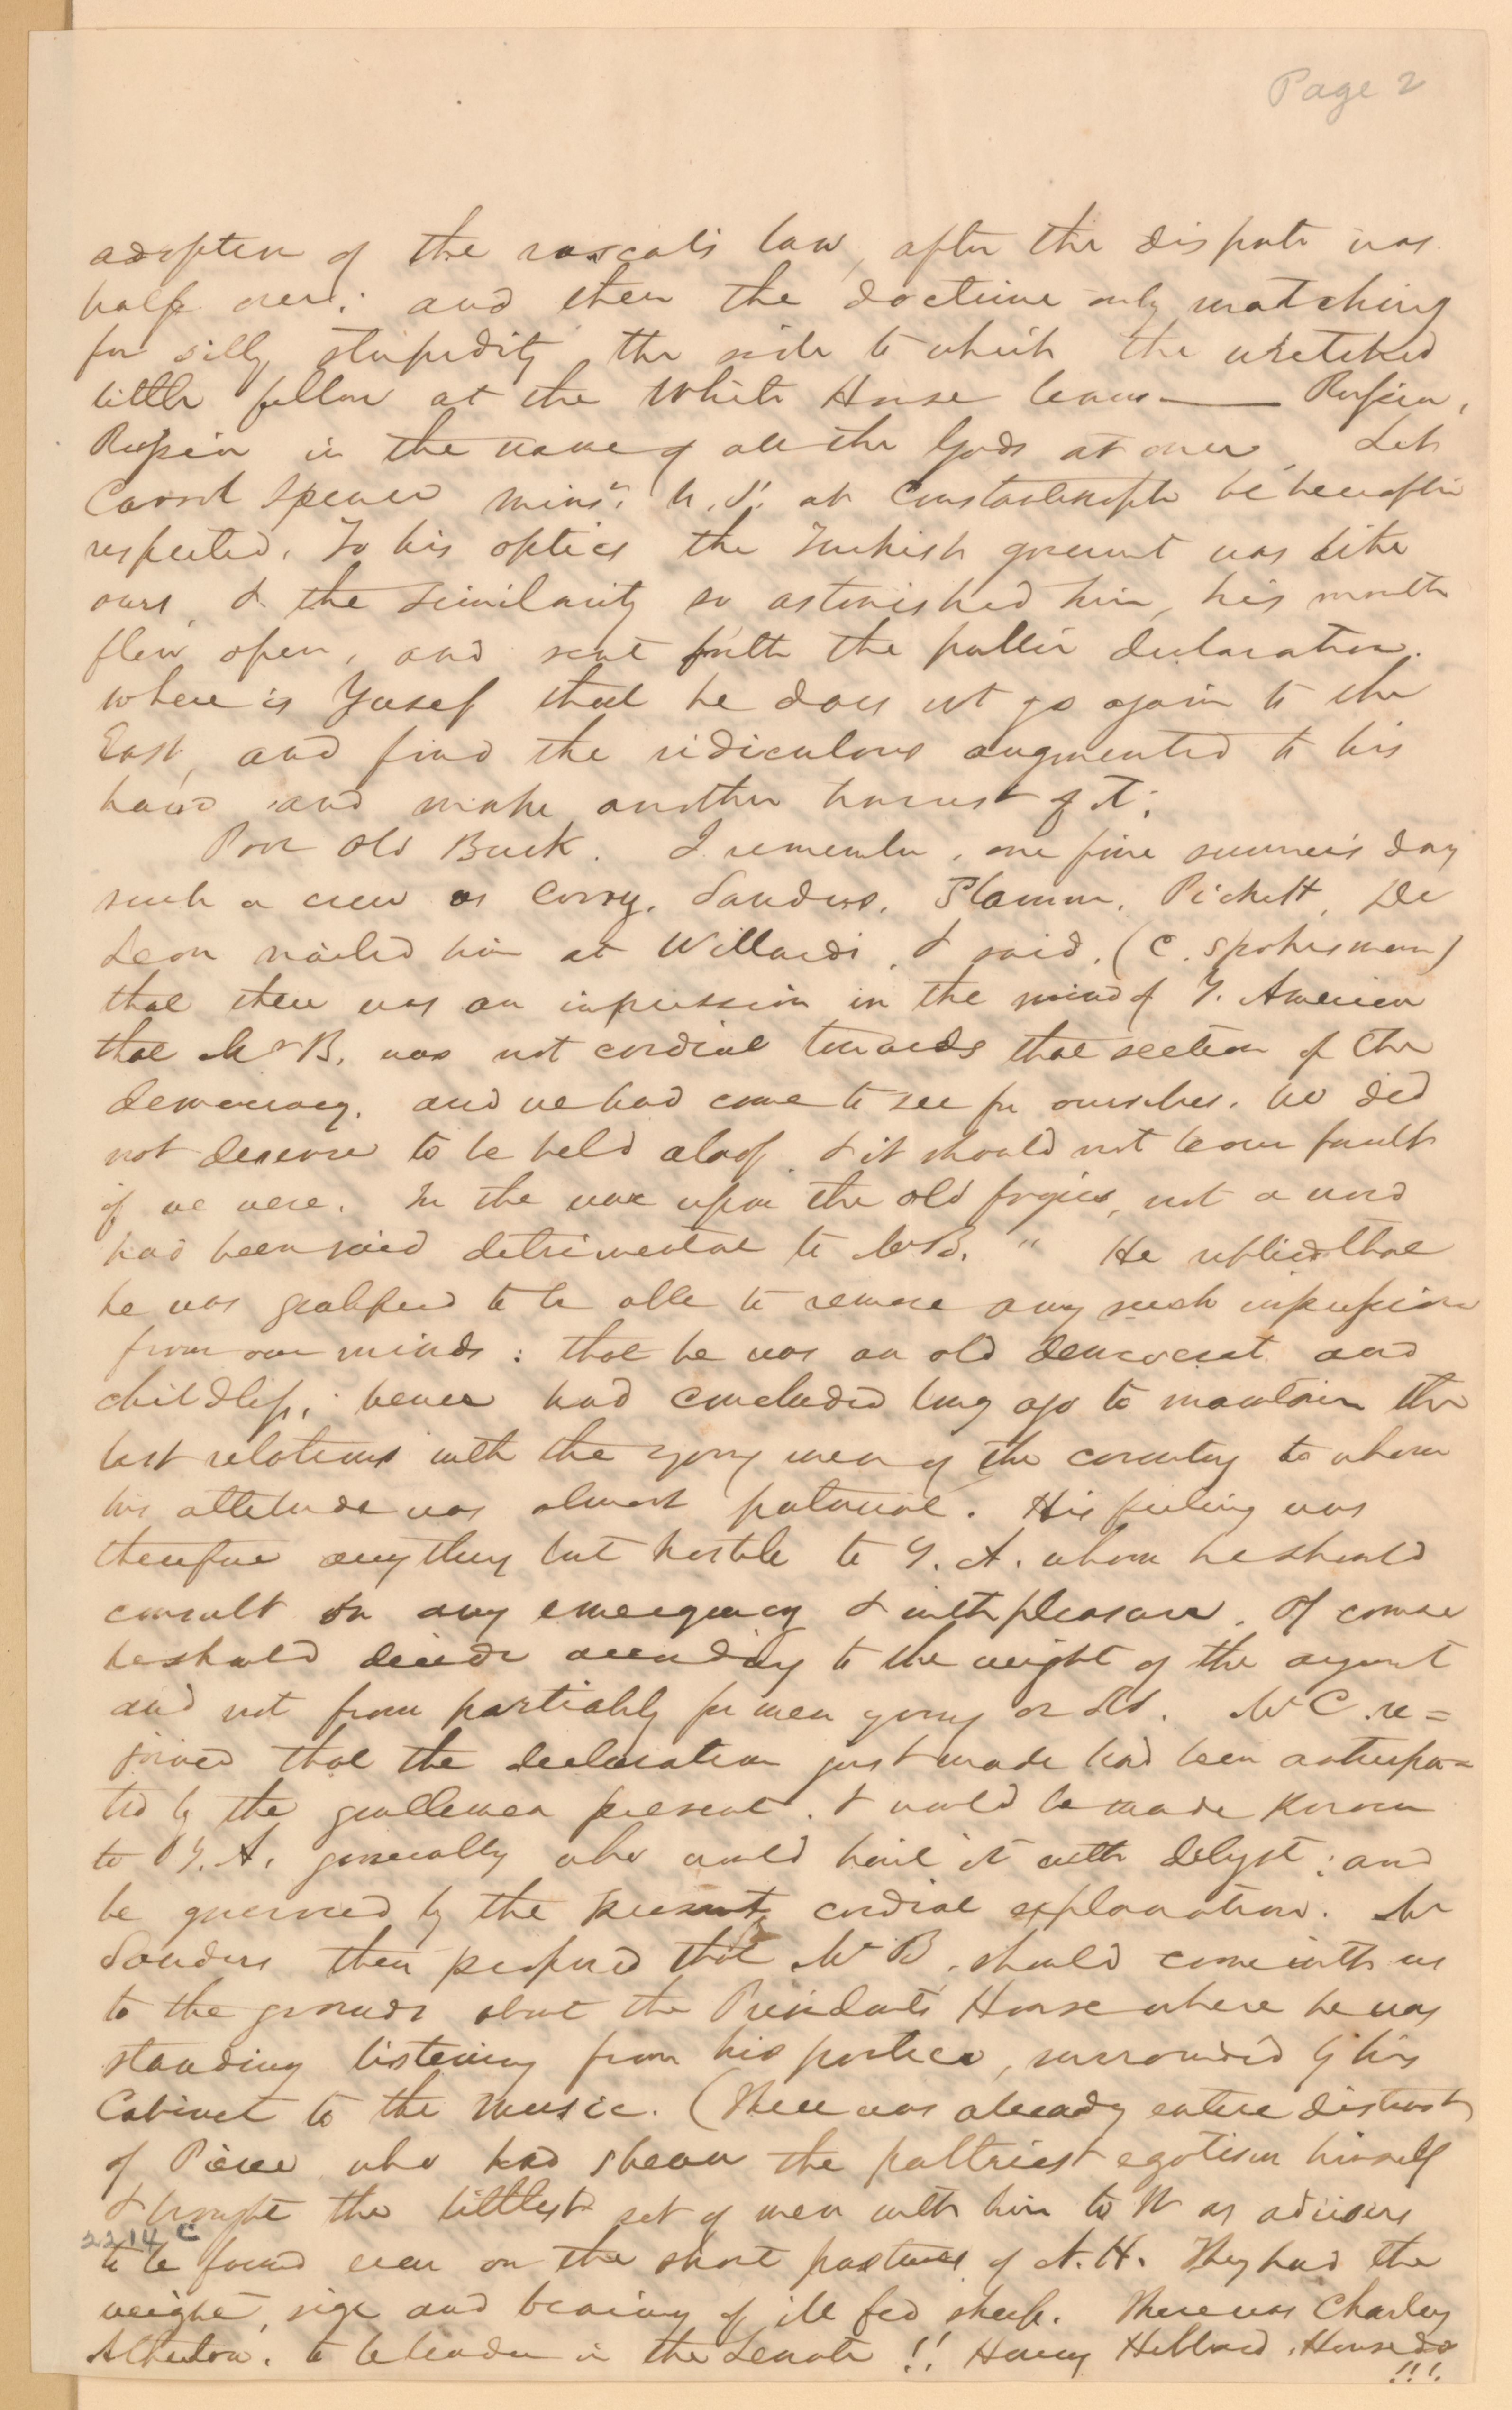 Page 2
adoption of the rascal's law, after the dispute was
half over: and then the doctrine only matching
for silly stupidity the side to which the wretched
little fellow at the White House leans — Russia,
Russia in the name of all the Gods at once. Let
Carrol Spence minr. U.S. at Constantinople be hereafter
respected. To his optics the Turkish governmt was like
ours, & the similarity so astonished him, his mouth
flew open, and sent forth the public declaration.
Where is Yusef that he does not go again to the
East, and find the ridiculous augmented to his
hand and make another harvest of it.
Poor Old Buck. I remember, one fine summer's day
such a crew as Corry, Sanders, Pickett, De
Leon visited him at Willards, & said, (C. spokesman)
that there was an impression in the mind of Y. America
that Mr B. was not cordial towards that section of the
democracy, and we had come to see for ourselves. We did
not deserve to be held aloof, & it should not be our fault
if we were. In the war upon the old fogies, not a word
had been said detrimental to Mr B. " He replied that
he was gratified to be able to remove any such impression
from our minds: that he was an old democrat and
childless; hence had concluded long ago to maintain the
best relations with the young men of the country to whom
his attitude was almost paternal. His feeling was
therefore anything but hostile to Y. A. whom he should
consult in any emergency & with pleasure. Of course
he should decide according to the weight of the argumt
and not from partiality for men young or old. Mr C. re=
joined that the declaration just made had been anticipa=
ted by the gentlemen present, & would be made known
to Y. A. generally who would hail it with delight: and
be governed by the present cordial explanation. Mr
Sanders then proposed that Mr B. should come with us
to the grounds about the President's House where he was
standing listening from his portico, surrounded by his
Cabinet to the Music. (There was already entire distrust
of Pierce who had shewn the paltriest egotism himself
& brought the littlest set of men with him to W as advisers
2214 C
to be found even on the short pastures of N.H. They had the
weight, size and bearing of ill fed sheep. There was Charley
Atherton, to be leader in the Senate !! Harry Hibbard, House do
!!!